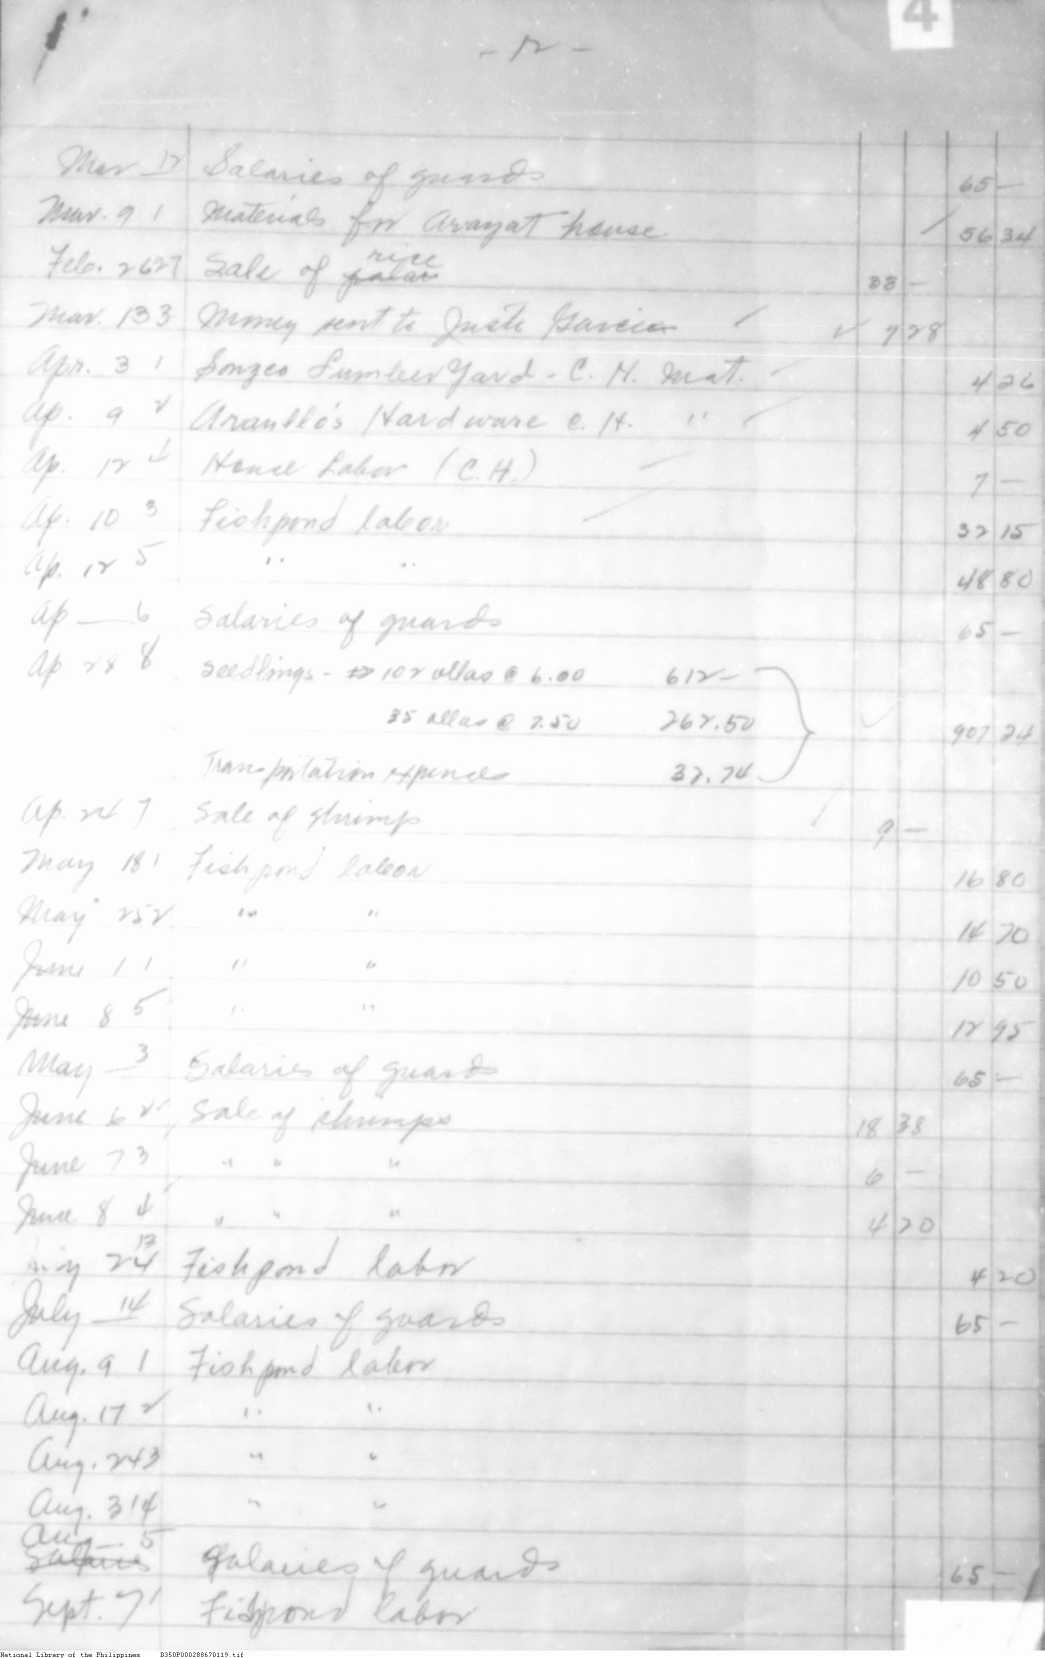 4
- 12 -
Mar — 12 Salaries of guards 65 —
Mar. 9 1 Materials for Arayat house 56 34
Feb. 26 27 Sale of palay rice 33 —
Mar. 13 3 Money sent to Justo Garcia 7 28
Apr. 3 1 Songco Lumber Yard - C. H. Mat. 4 26
Ap. 9 2 Aranllo's Hardware C. H. " 4 50
Ap. 12 4 House Labor (C.H.) 7 —
Ap. 10 3 Fishpond labor 32 15
Ap. 12 5 " " 48 80
Ap — 6 Salaries of guards 65 —
Ap 28 8 Seedlings - 102 ollas @ 6.00 612 —
35 ollas @ 7.50 262.50 907 24
Transportation expences 32.74
Ap. 24 7 Sale of shrimps 9 —
May 18 1 Fishpond labor 16 80
May 25 2 " " 14 70
June 1 1 " " 10 50
June 8 5 " " 12 95
May — 3 Salaries of guards 65 —
June 6 2 Sale of shrimps 18 38
June 7 3 " " " 6 —
June 8 4 " " " 4 20
24 13 Fishpond labor 4 20
July — 14 Salaries of guards 65 —
Aug. 9 1 Fishpond labor
Aug. 17 2 " "
Aug. 24 3 " "
Aug. 31 4 " "
Aug — 5
Salaries Salaries of guards 65 —
Sept. 7 1 Fishpond labor
National Library of the Philippines D350P000288670119.tif